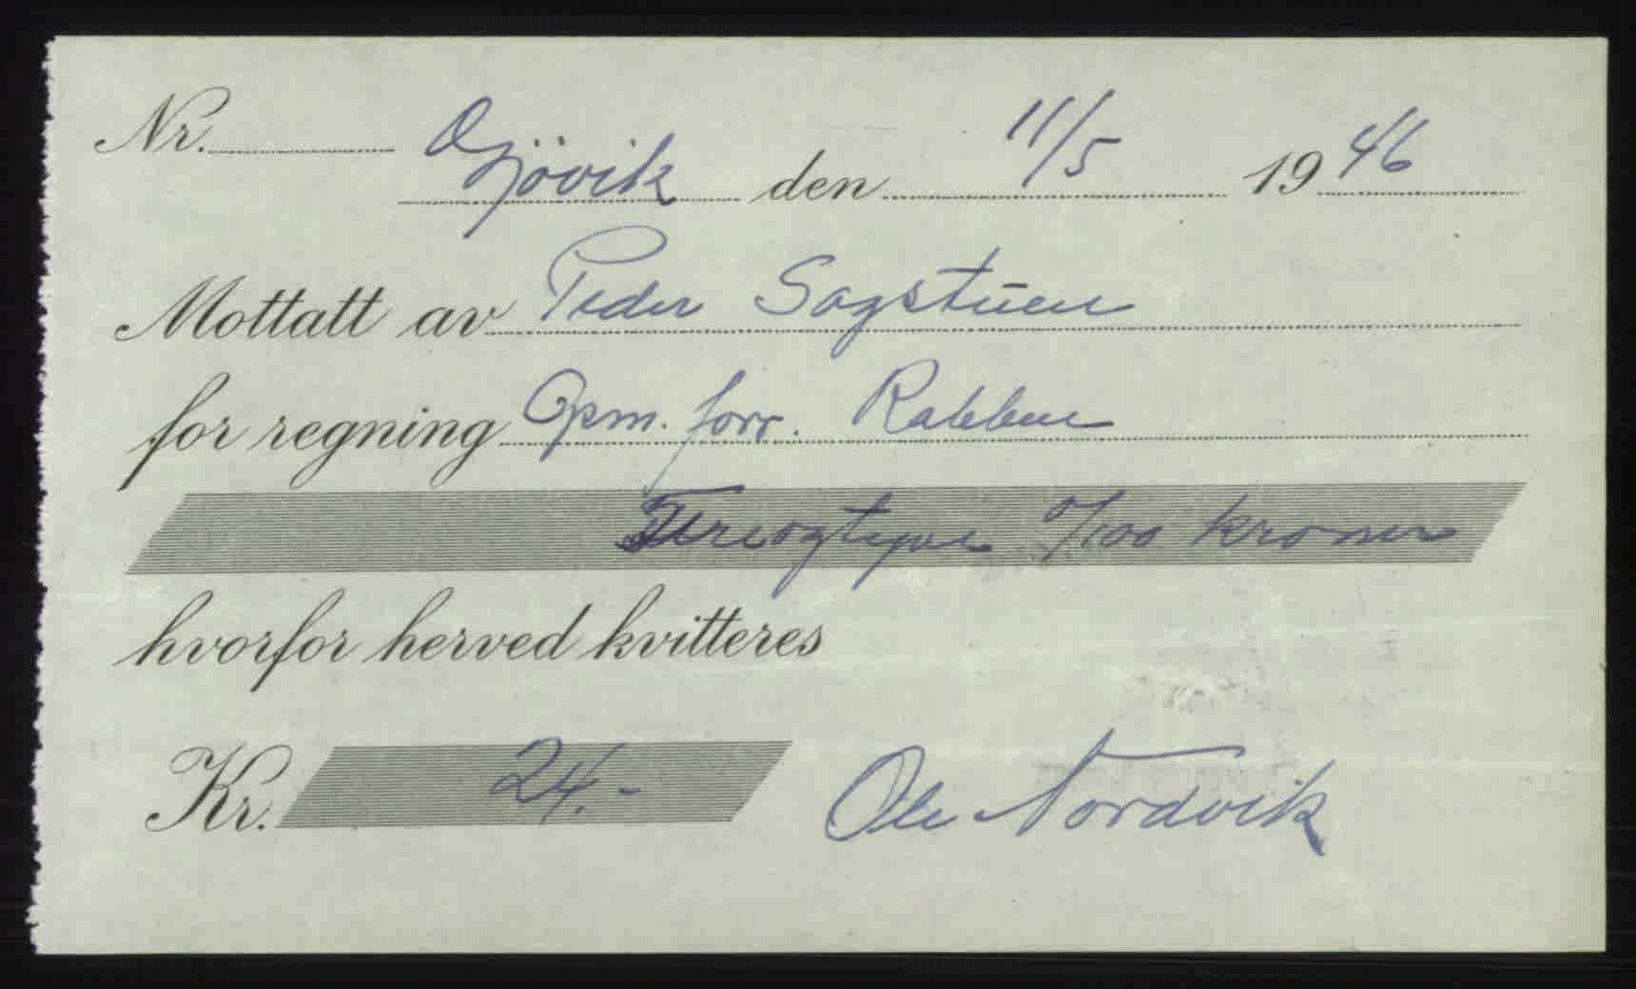 Nr. Gjövik den 11/5 1946
Mottatt av Peder Sagstuen
for regning Opm. forr. Rabben
Fireogtyve 0/100 kroner
hvorfor herved kvitteres
Kr. 24.- Ole Nordvik